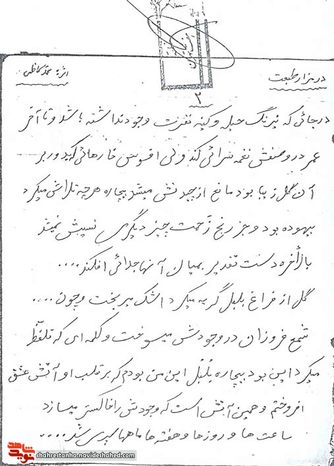 در مزار طبیعت
اثر: محمد کاظمی
۲
در جائی که نیرنگ حیله و کینه نفرت وجود نداشته باشد و تا آخر
عمر در وصفش نغمه سرائی کند ولی افسوس خارهائی که در بر
آن گل زیبا بود مانع از چیدنش میشد بیچاره هر چه تلاش میکرد
بیهوده بود و جز رنج زحمت چیز دیگری نصیبش نمیشد
بالاخره دست تقدیر بمیان آنها جدائی افکند....
گل از فراغ بلبل گریه میکرد اشک میریخت و چون....
شمع فروزان در وجودش میسوخت و کلمه ای که تلفظ
میکرد این بود بیچاره بلبل این من بودم که بر قلب او آتش عشق
افروختم و همین آتش است که وجودش را خاکستر میسازد
ساعت ها و روزها و هفته ها ماهها سپری شد....
shohrestanha.navideshahed.com